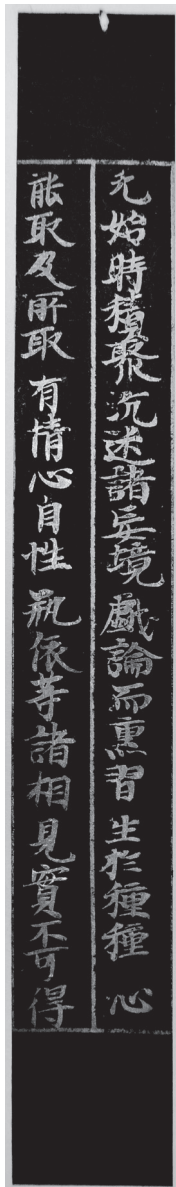 无始時積聚沉迷諸妄境戲論而熏習生於種種心
能取及所取有情心自性瓶依等諸相見實不可得